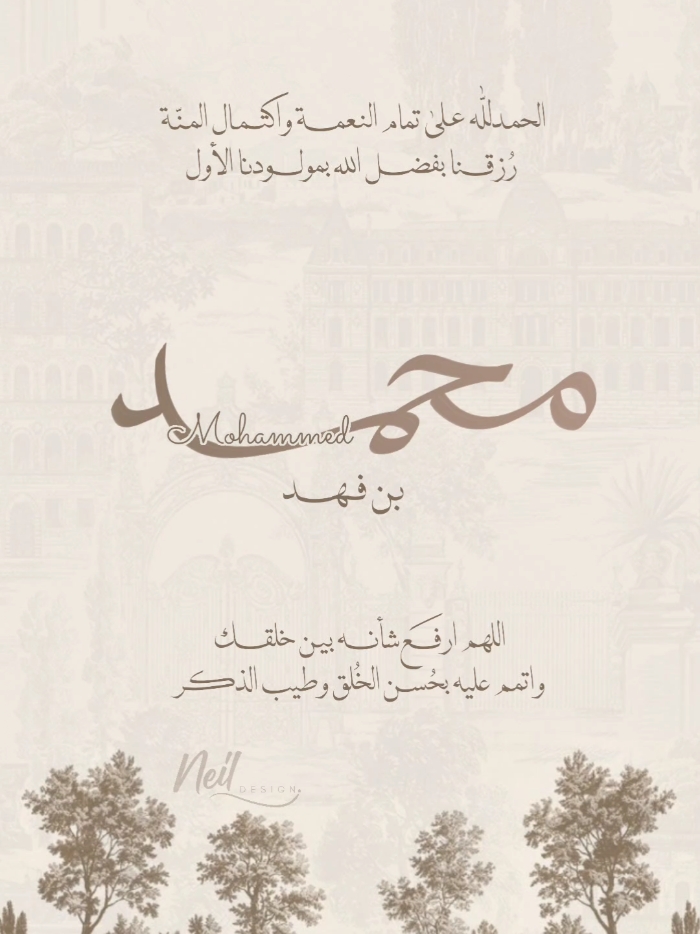 الحمدلله على تمام النعمة واكتمال المنّة
رُزقنا بفضل الله بمولودنا الأول
محمد
Mohammed
بن فهد
اللهم ارفع شأنه بين خلقك
واتمم عليه بحُسن الخُلق وطيب الذكر
Neil
DESIGN.